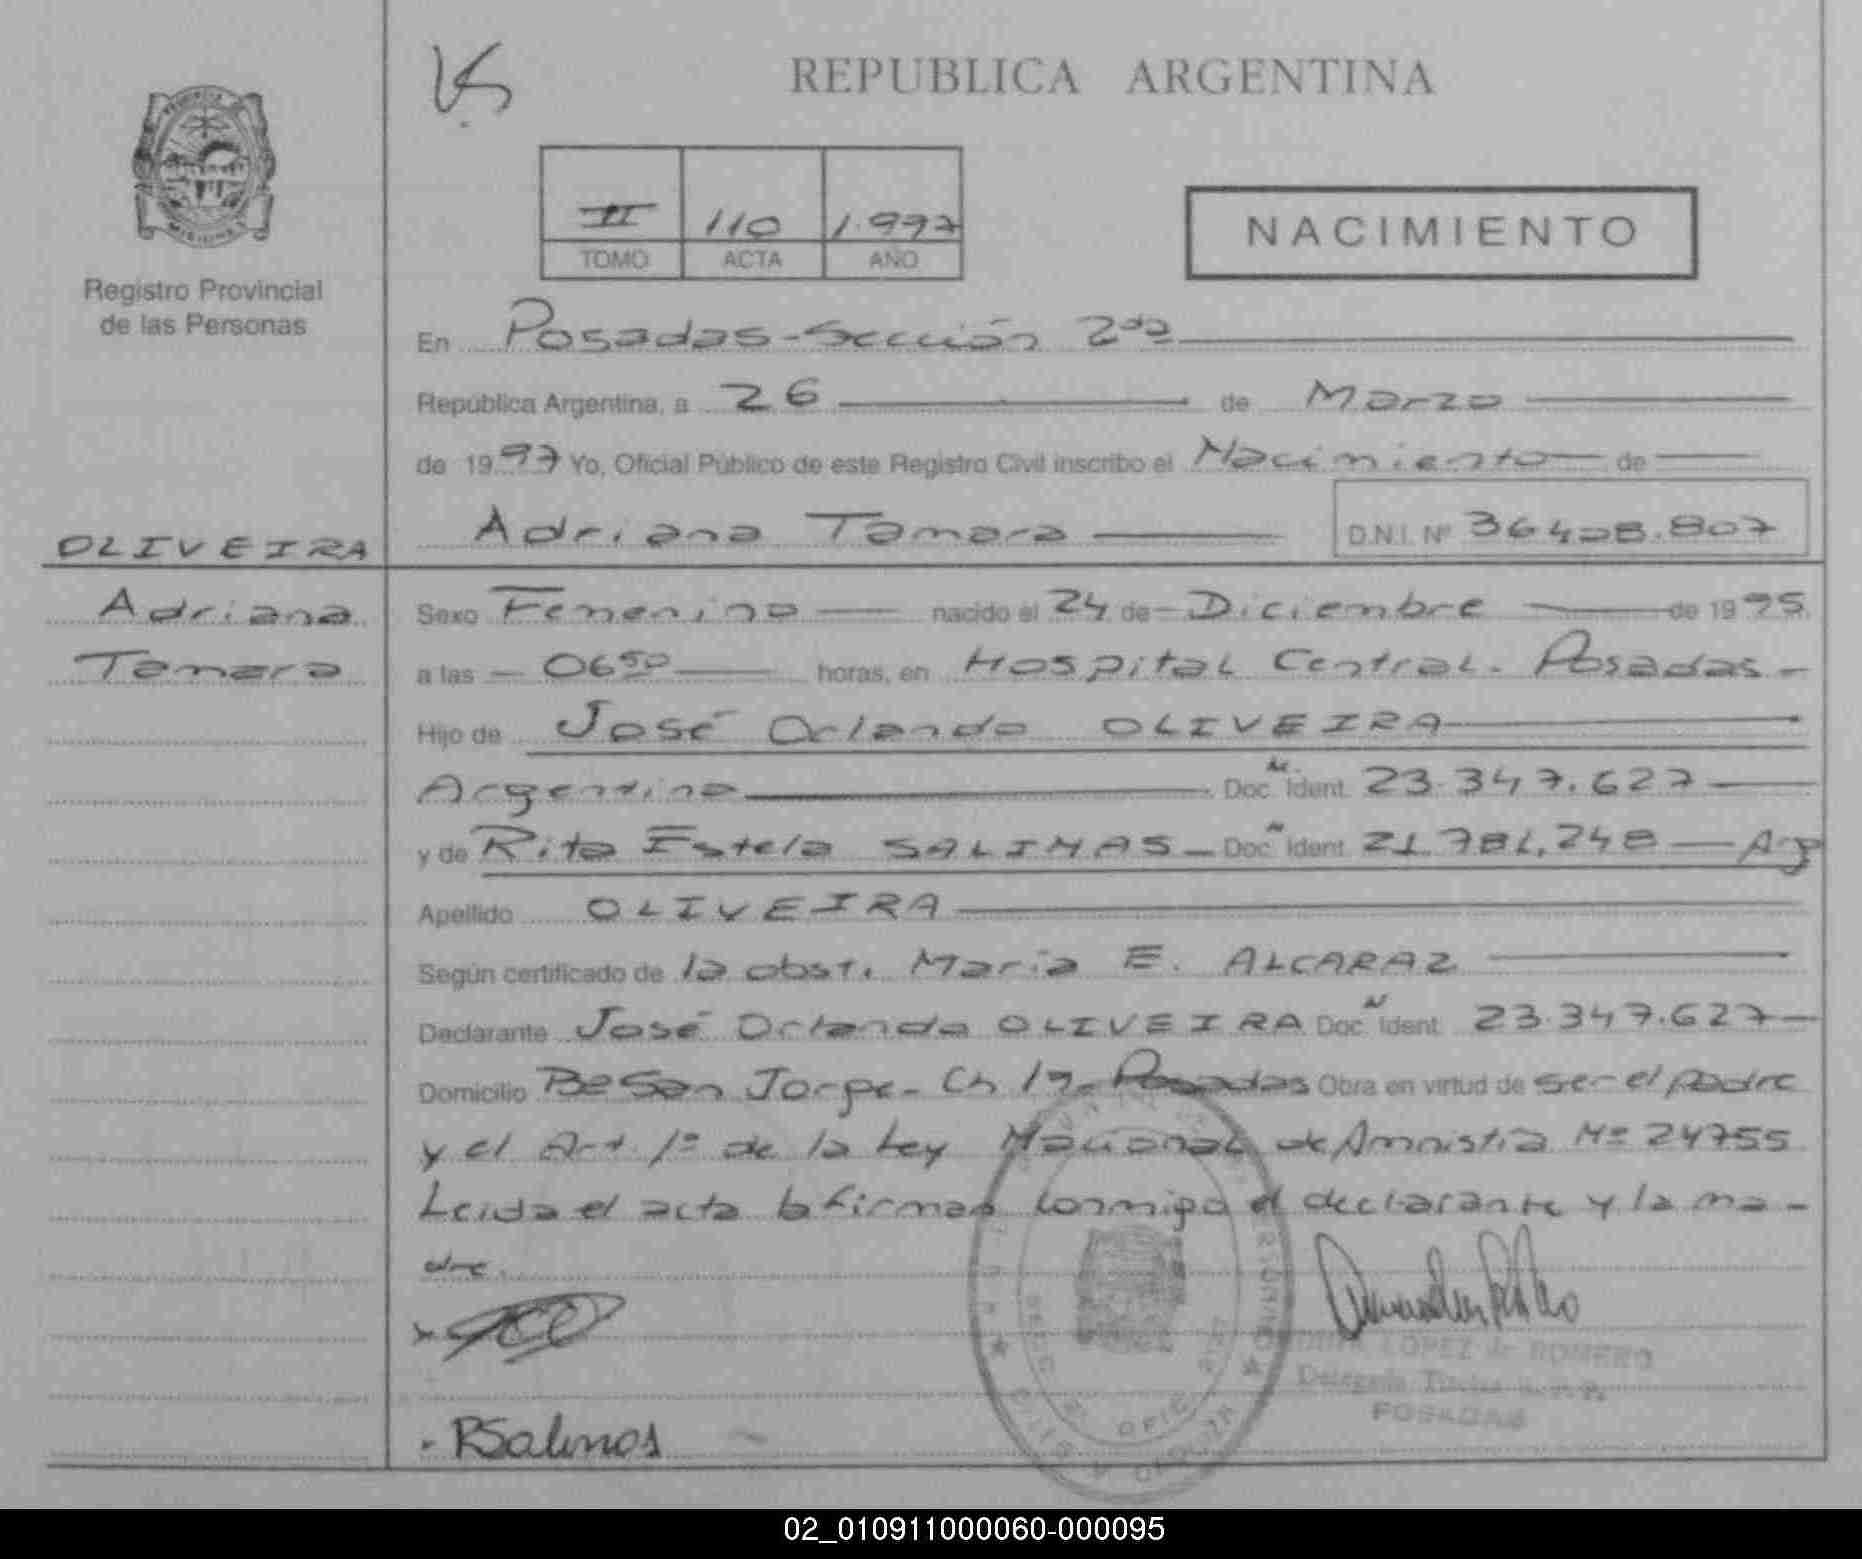 REPUBLICA ARGENTINA
PROVINCIA
MISIONES
Registro Provincial
de las Personas
II 110 1.997
TOMO ACTA AÑO
NACIMIENTO
En Posadas - Sección 2da
República Argentina, a 26 de Marzo
de 1997 Yo, Oficial Público de este Registro Civil inscribo el Nacimiento de
Adriana Tamara D.N.I. Nº 36408.807
OLIVEIRA
Adriana
Tamara
Sexo Femenino nacido el 24 de Diciembre de 1995.
a las 0650 horas, en Hospital Central - Posadas -
Hijo de José Orlando OLIVEIRA
Argentino Doc. N. Ident. 23.347.627
y de Rita Estela SALINAS - Doc. N Ident. 21.781.248 - Arg
Apellido OLIVEIRA
Según certificado de la obst. María E. ALCARAZ
Declarante José Orlando OLIVEIRA Doc. N Ident. 23.347.627 -
Domicilio Bº San Jorge - Ch 19 - Posadas Obra en virtud de ser el padre
y el Art. 1º de la Ley Nacional de Amnistía Nº 24755
Leida el acta la firman conmigo el declarante y la ma-
dre.
LOPEZ de ROMERO
Delegada
POSADAS
RSalinas
02_010911000060-000095